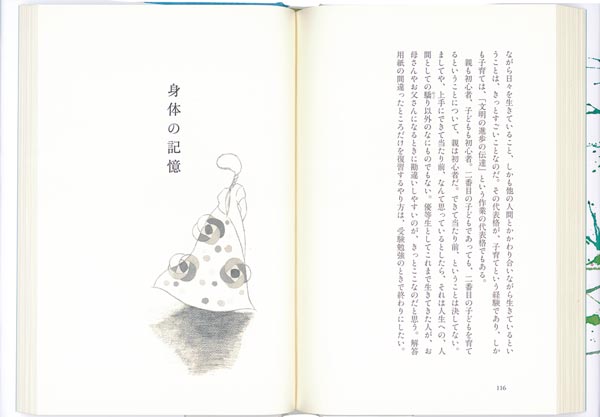 ながら日々を生きていること、しかも他の人間とかかわり合いながら生きているとい
うことは、きっとすごいことなのだ。その代表格が、子育てという経験であり、しか
も子育ては、「文明の進歩の伝達」という作業の代表格でもある。
親も初心者、子どもも初心者。二番目の子どもであっても、二番目の子どもを育て
るということについて、親は初心者だ。できて当たり前、ということは決してない。
ましてや、上手にできて当たり前、なんて思っているとしたら、それは人生への、人
間としての驕り以外のなにものでもない。優等生としてこれまで生きてきた人が、お
母さんやお父さんになるときに勘違いしやすいのが、きっとここなのだと思う。解答
用紙の間違ったところだけを復習するやり方は、受験勉強のときで終わりにしたい。
116
身体の記憶